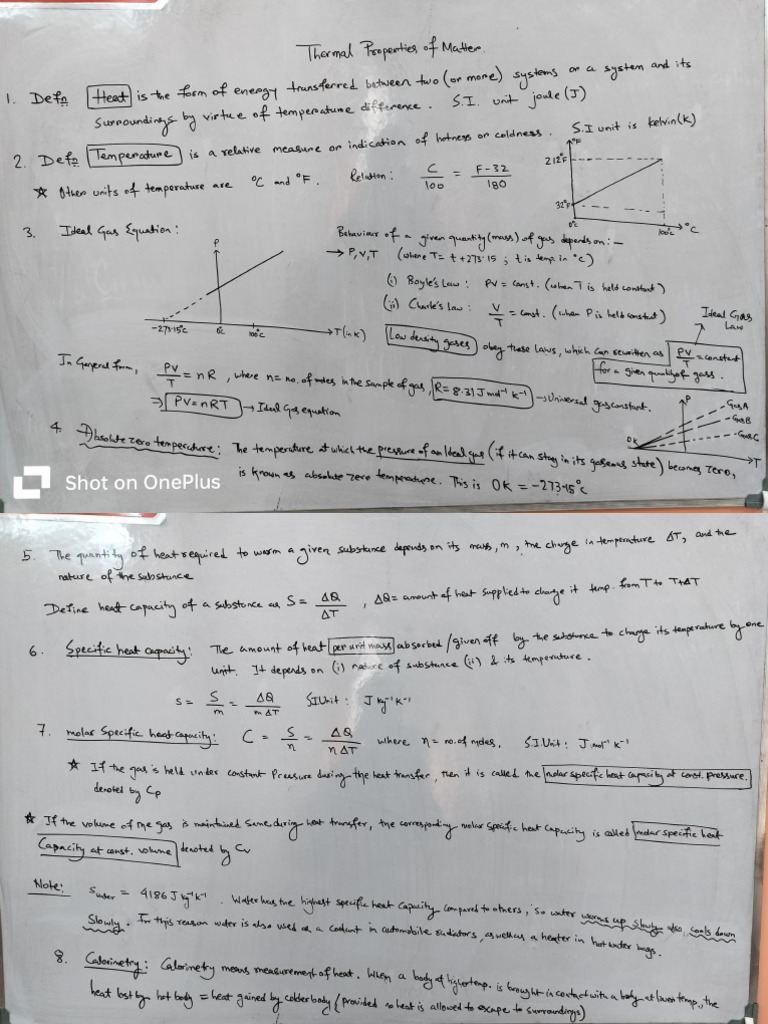 Thermal Properties of Matter.
1. Defn Heat is the form of energy transferred between two (or more) systems or a system and its
surroundings by virtue of temperature difference. S.I. unit joule (J)
2. Defn Temperature is a relative measure or indication of hotness or coldness. S.I unit is kelvin(K)
☆ Other units of temperature are °C and °F. Relation: C/100 = F-32/180
°F
212°F
32°F
0°C 100°C °C
3. Ideal Gas Equation:
P
-273.15°C 0°C 100°C T(in K)
Behaviour of a given quantity(mass) of gas depends on: —
→ P, V, T (where T = t + 273.15 ; t is temp. in °C)
(i) Boyle's Law : PV = const. (when T is held constant)
(ii) Charle's law : V/T = const. (when P is held constant)
Ideal Gas
Law
Low density gases obey these laws, which can rewritten as PV/T = constant
for a given quantity of gass.
In General form, PV/T = nR , where n = no. of moles in the sample of gas, R = 8.31 J mol⁻¹ K⁻¹ → Universal gas constant.
⇒ PV = nRT → Ideal Gas equation
P
Gas A
Gas B
Gas C
0K
T
4. Absolute zero temperature: The temperature at which the pressure of an Ideal gas (if it can stay in its gaseous state) becomes zero,
is known as absolute zero temperature. This is 0K = -273.15°C
Shot on OnePlus
5. The quantity of heat required to warm a given substance depends on its mass, m, the change in temperature ΔT, and the
nature of the substance
Define heat capacity of a substance as S = ΔQ/ΔT , ΔQ = amount of heat supplied to change it temp. from T to T+ΔT
6. Specific heat capacity: The amount of heat per unit mass absorbed/given off by the substance to change its temperature by one
unit. It depends on (i) nature of substance (ii) & its temperature.
s = S/m = ΔQ/mΔT S.I Unit : J kg⁻¹ K⁻¹
7. molar Specific heat capacity: C = S/n = ΔQ/nΔT where n = no. of moles. S.I. Unit : J mol⁻¹ K⁻¹
☆ If the gas is held under constant Pressure during the heat transfer, then it is called the molar specific heat capacity at const. pressure.
denoted by Cp
☆ If the volume of the gas is maintained same during heat transfer, the corresponding molar specific heat capacity is called molar specific heat
Capacity at const. volume denoted by Cv
Note: Swater = 4186 J kg⁻¹ K⁻¹. Water has the highest specific heat capacity compared to others, so water warms up slowly also, cools down
Slowly. For this reason water is also used as a coolant in automobile radiators, as well as a heater in hot water bags.
8. Calorimetry: Calorimetry means measurement of heat. When a body at higher temp. is brought in contact with a body at lower temp., the
heat lost by hot body = heat gained by colder body (provided no heat is allowed to escape to surroundings)